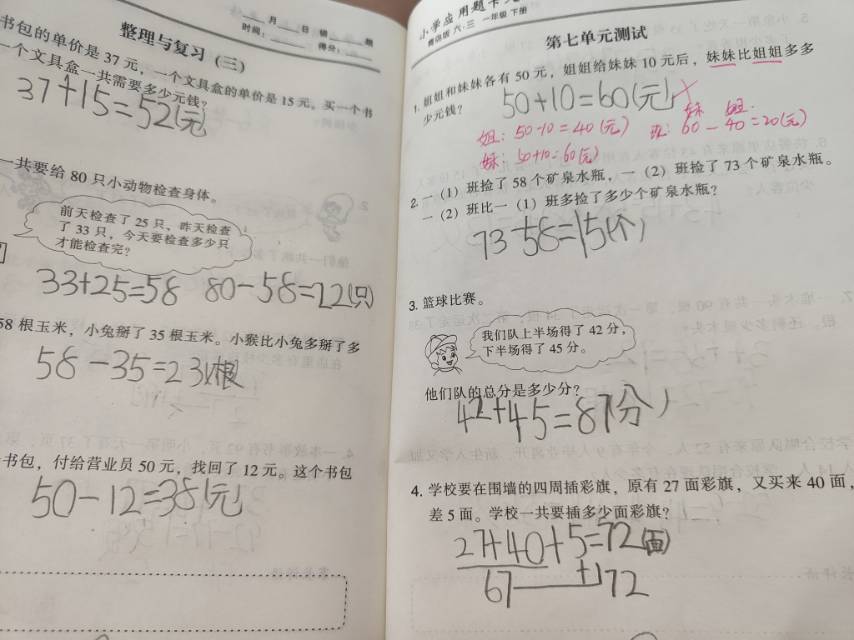 整理与复习（三）
月 日 错 题
时间： 得分：
书包的单价是 37 元，一个文具盒的单价是 15 元。买一个书
一个文具盒一共需要多少元钱？
37+15=52(元)
一共要给 80 只小动物检查身体。
前天检查了 25 只，昨天检查
了 33 只，今天要检查多少只
才能检查完？
33+25=58 80-58=22(只)
58 根玉米，小兔掰了 35 根玉米。小猴比小兔多掰了多
58-35=23(根
书包，付给营业员 50 元，找回了 12 元。这个书包
50-12=38(元
小学应用题卡
青岛版 六·三 一年级 下册
第七单元测试
1. 姐姐和妹妹各有 50 元，姐姐给妹妹 10 元后，妹妹比姐姐多多
少元钱？
50+10=60(元)
妹 姐
姐：50-10=40(元) 60-40=20(元)
妹：50+10=60(元)
2. 一（1）班捡了 58 个矿泉水瓶，一（2）班捡了 73 个矿泉水瓶。
一（2）班比一（1）班多捡了多少个矿泉水瓶？
73-58=15(个)
3. 篮球比赛。
我们队上半场得了 42 分，
下半场得了 45 分。
他们队的总分是多少分？
42+45=87(分)
4. 学校要在围墙的四周插彩旗，原有 27 面彩旗，又买来 40 面，
差 5 面。学校一共要插多少面彩旗？
27+40+5=72(面)
67 + 72